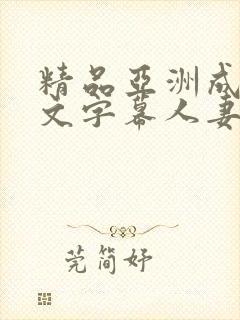 精品亞洲成
文字幕人妻
莞簡妤